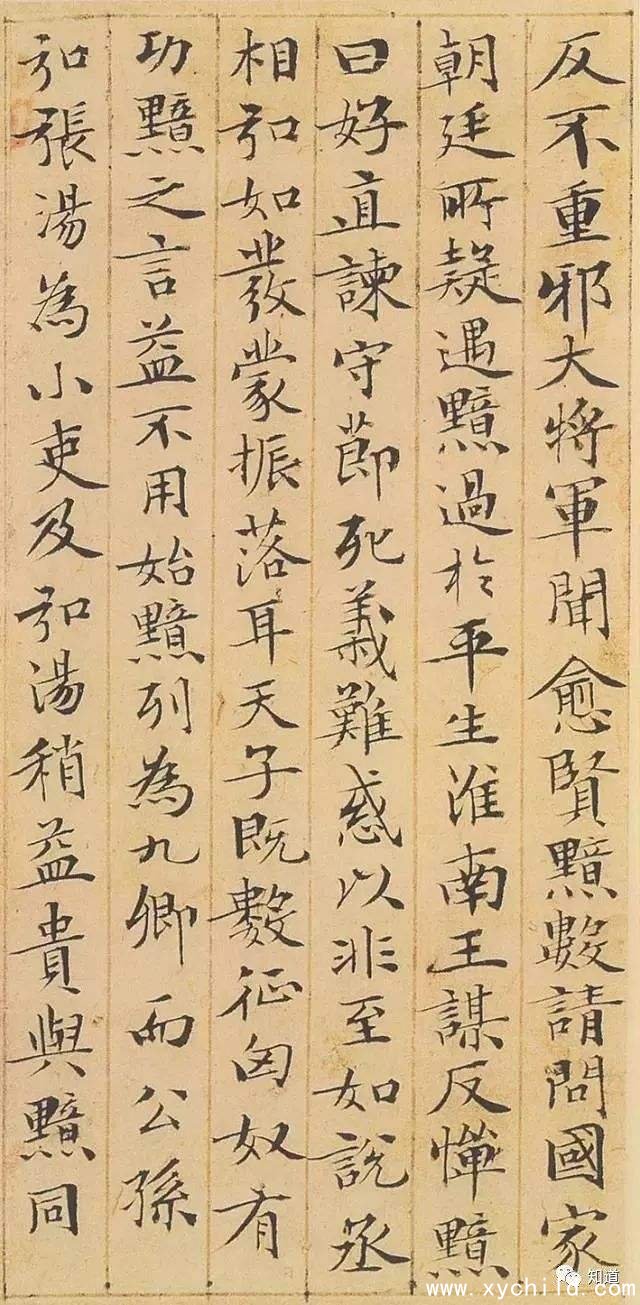 反不重邪大將軍聞愈賢黯數請問國家
朝廷所疑遇黯過於平生淮南王謀反憚黯
曰好直諫守節死義難惑以非至如說丞
相弘如發蒙振落耳天子既數征匈奴有
功黯之言益不用始黯列為九卿而公孫
弘張湯為小吏及弘湯稍益貴與黯同
知道
www.xychild.com